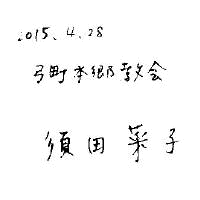 2015.4.28
弓町本郷教会
須田菜子